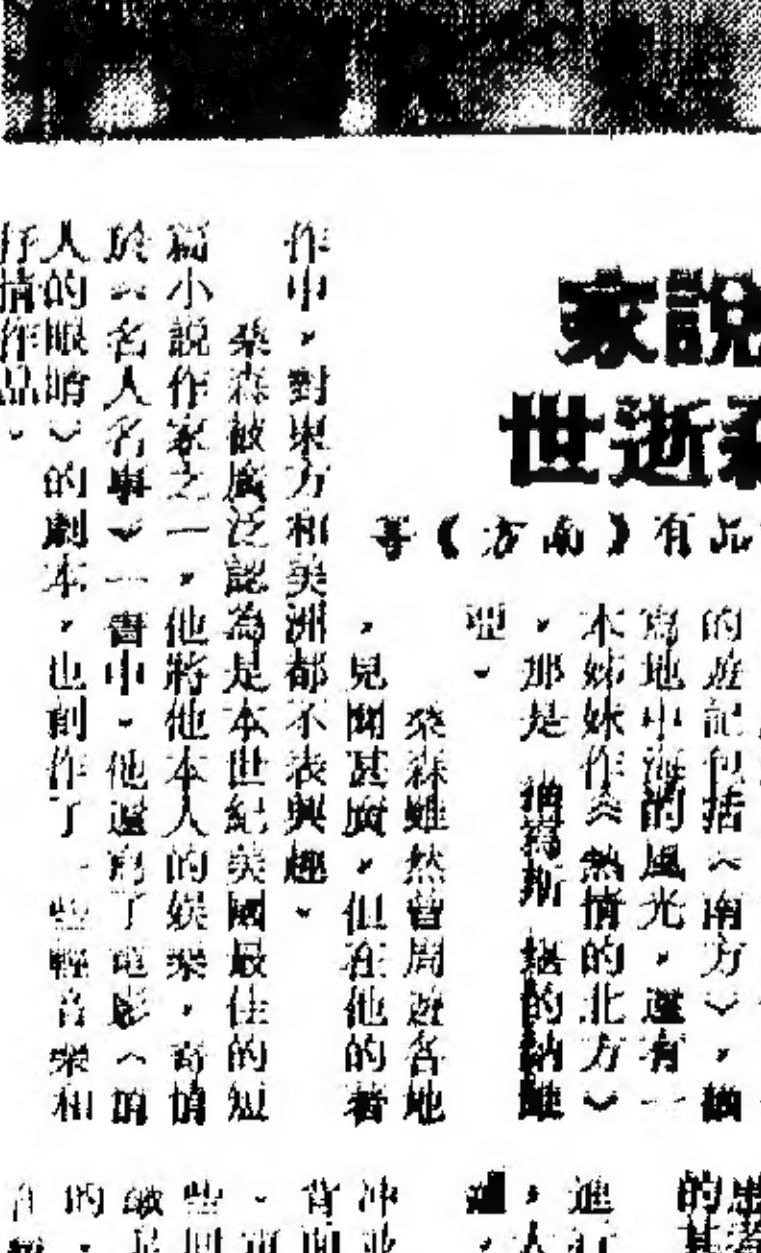 說家
逝世
有《南方》等
的遊記包括︽南方︾，描
寫地中海的風光，還有一
本姊妹作︽熱情的北方︾
，那是 描寫斯 堪的納維
亞。
桑森雖然曾周遊各地
，見聞甚廣，但在他的著
作中，對東方和美洲都不表興趣。
桑森被廣泛認為是本世紀英國最佳的短
篇小說作家之一，他將他本人的娛樂，寄情
於︽名人名事︾一書中。他還寫了電影︽情
人的眼睛︾的劇本，也創作了一些輕音樂和
抒情作品。